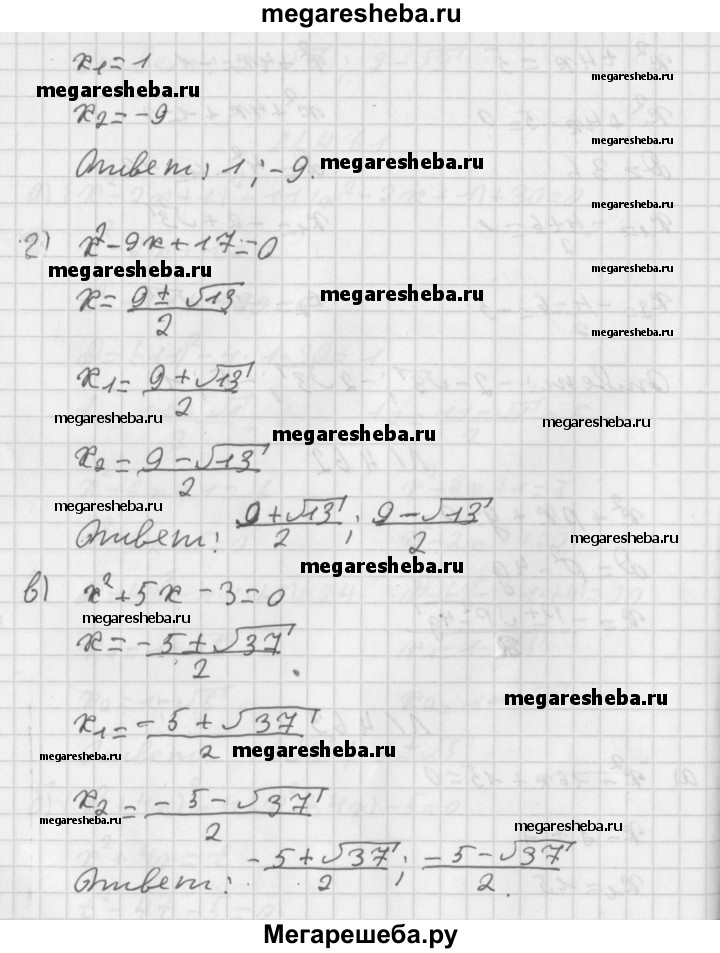 megaresheba.ru
x₁=1
megaresheba.ru
megaresheba.ru
x₂=-9
megaresheba.ru
Ответ: 1; -9.
megaresheba.ru
megaresheba.ru
г) x²-9x+17=0
megaresheba.ru
megaresheba.ru
x=(9±√13)/2
megaresheba.ru
megaresheba.ru
x₁=(9+√13)/2
megaresheba.ru
megaresheba.ru
megaresheba.ru
x₂=(9-√13)/2
megaresheba.ru
Ответ: (9+√13)/2; (9-√13)/2
megaresheba.ru
megaresheba.ru
в) x²+5x-3=0
megaresheba.ru
x=(-5±√37)/2.
megaresheba.ru
x₁=(-5+√37)/2
megaresheba.ru
megaresheba.ru
x₂=(-5-√37)/2
megaresheba.ru
megaresheba.ru
Ответ: (-5+√37)/2; (-5-√37)/2.
Мегарешеба.ру